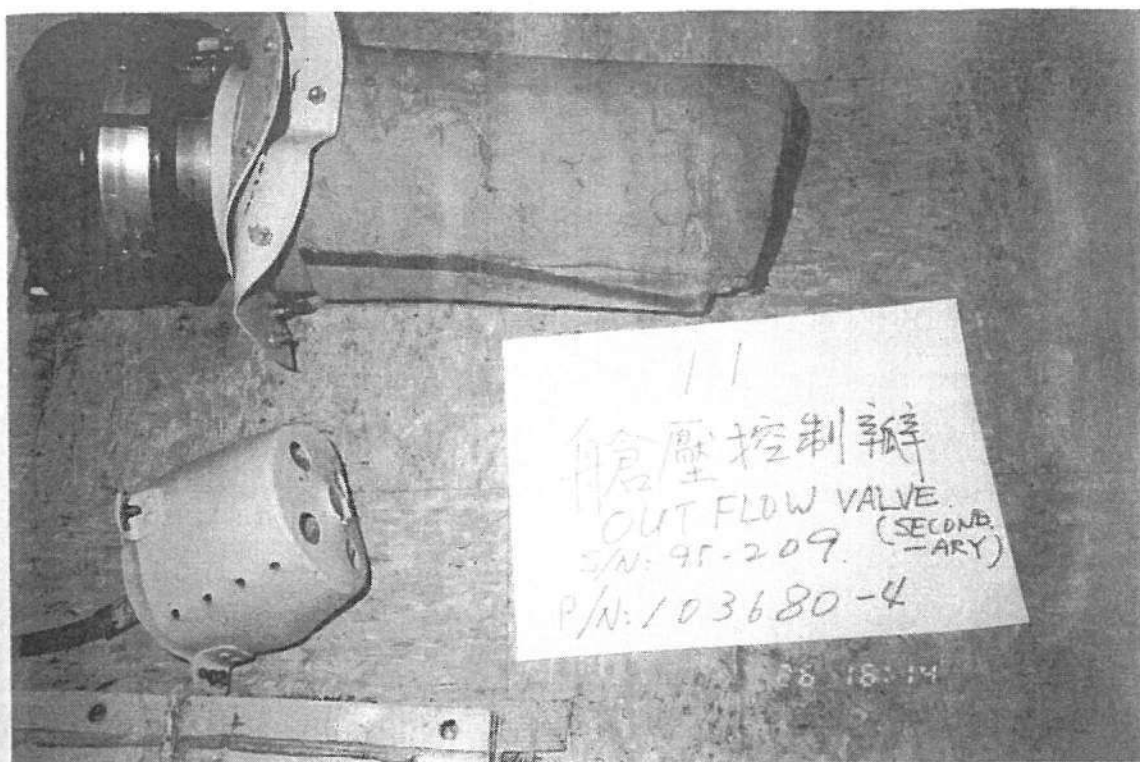 11
艙壓控制瓣
OUT FLOW VALVE.
(SECOND.
-ARY)
S/N: 95-209.
P/N: 103680-4
28 18:14